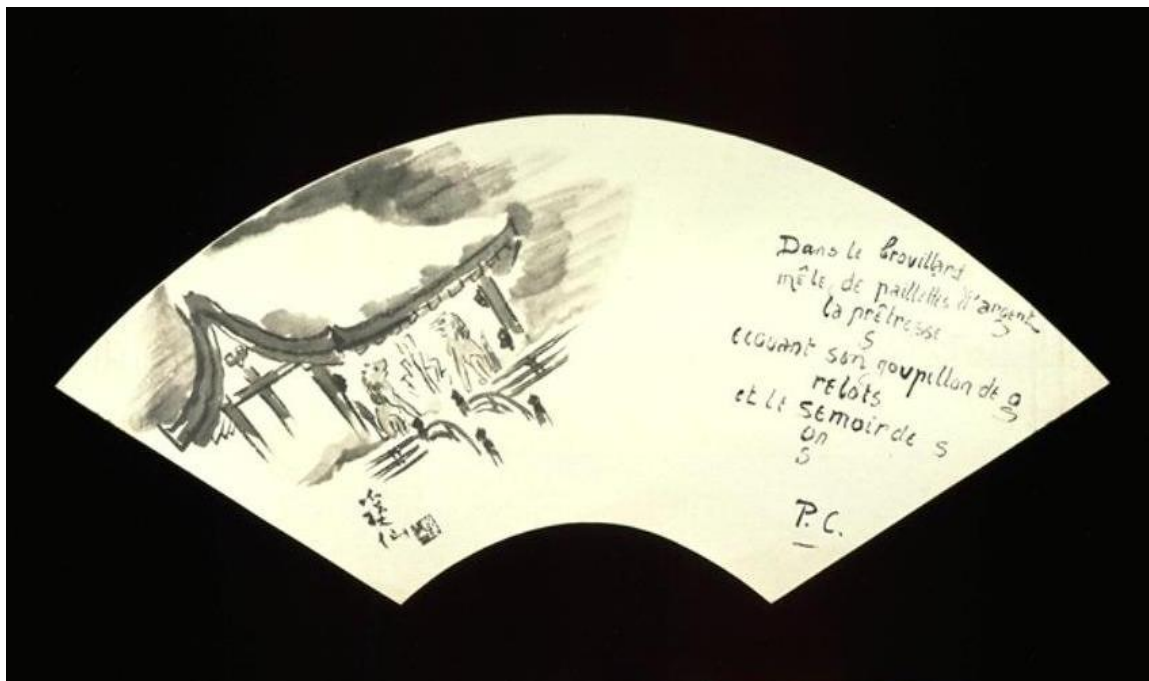 Dans le brouillard
mêlé de paillettes d'argent
la prêtresse
s
ecouant son goupillon de g
relots
et le semoir de s
on
s
P. C.
仙